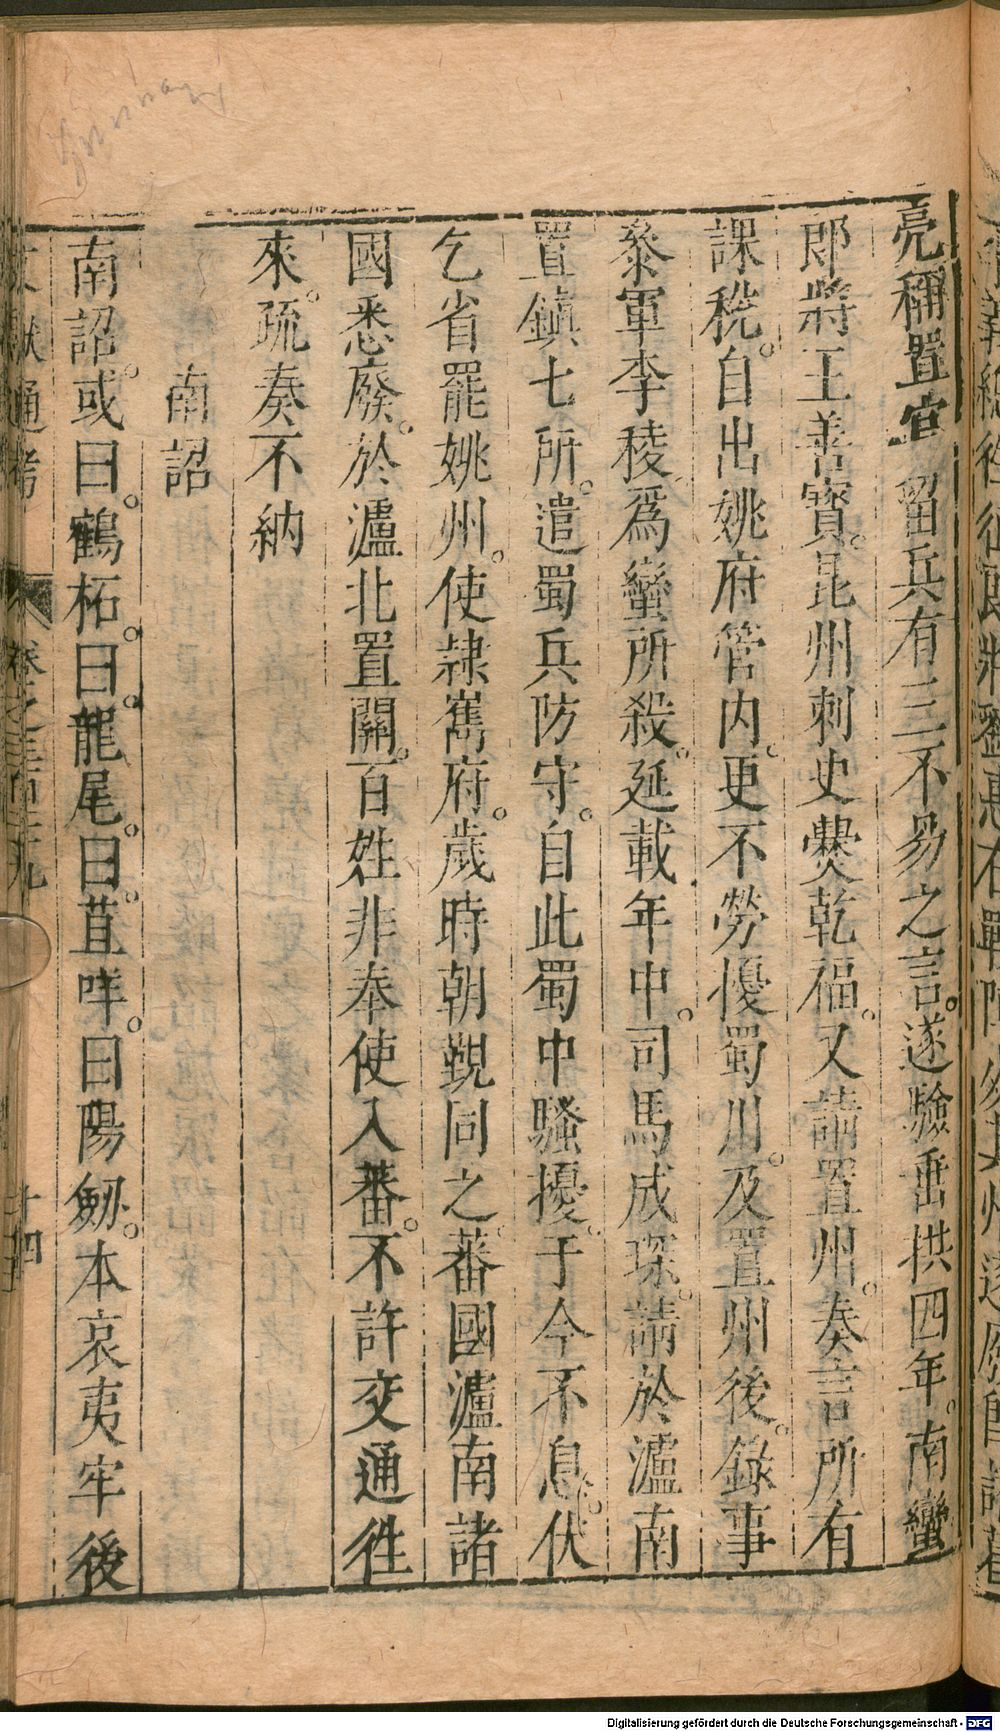 亮稱置官留兵有三不易之言。遂驗垂拱四年。南蠻
郎將王善寳。昆州刺史㸑乾福。又請置州。奏言所有
課稅。自出姚府管内。更不勞擾蜀川。及置州後。錄事
叅軍李稜爲蠻所殺。延載年中。司馬成琛。請於瀘南
置鎮七所。遣蜀兵防守。自此蜀中騷擾。于今不息。伏
乞省罷姚州。使隷巂府。歲時朝覲同之蕃國瀘南諸
國悉廢。於瀘北置關。百姓非奉使入蕃。不許交通徃
來。疏奏不納
南詔
南詔。或曰。鶴柘。曰。龍尾。曰。苴咩。曰陽劒。本哀夷牢後
文獻通考
十四
Digitalisierung gefördert durch die Deutsche Forschungsgemeinschaft - DFG